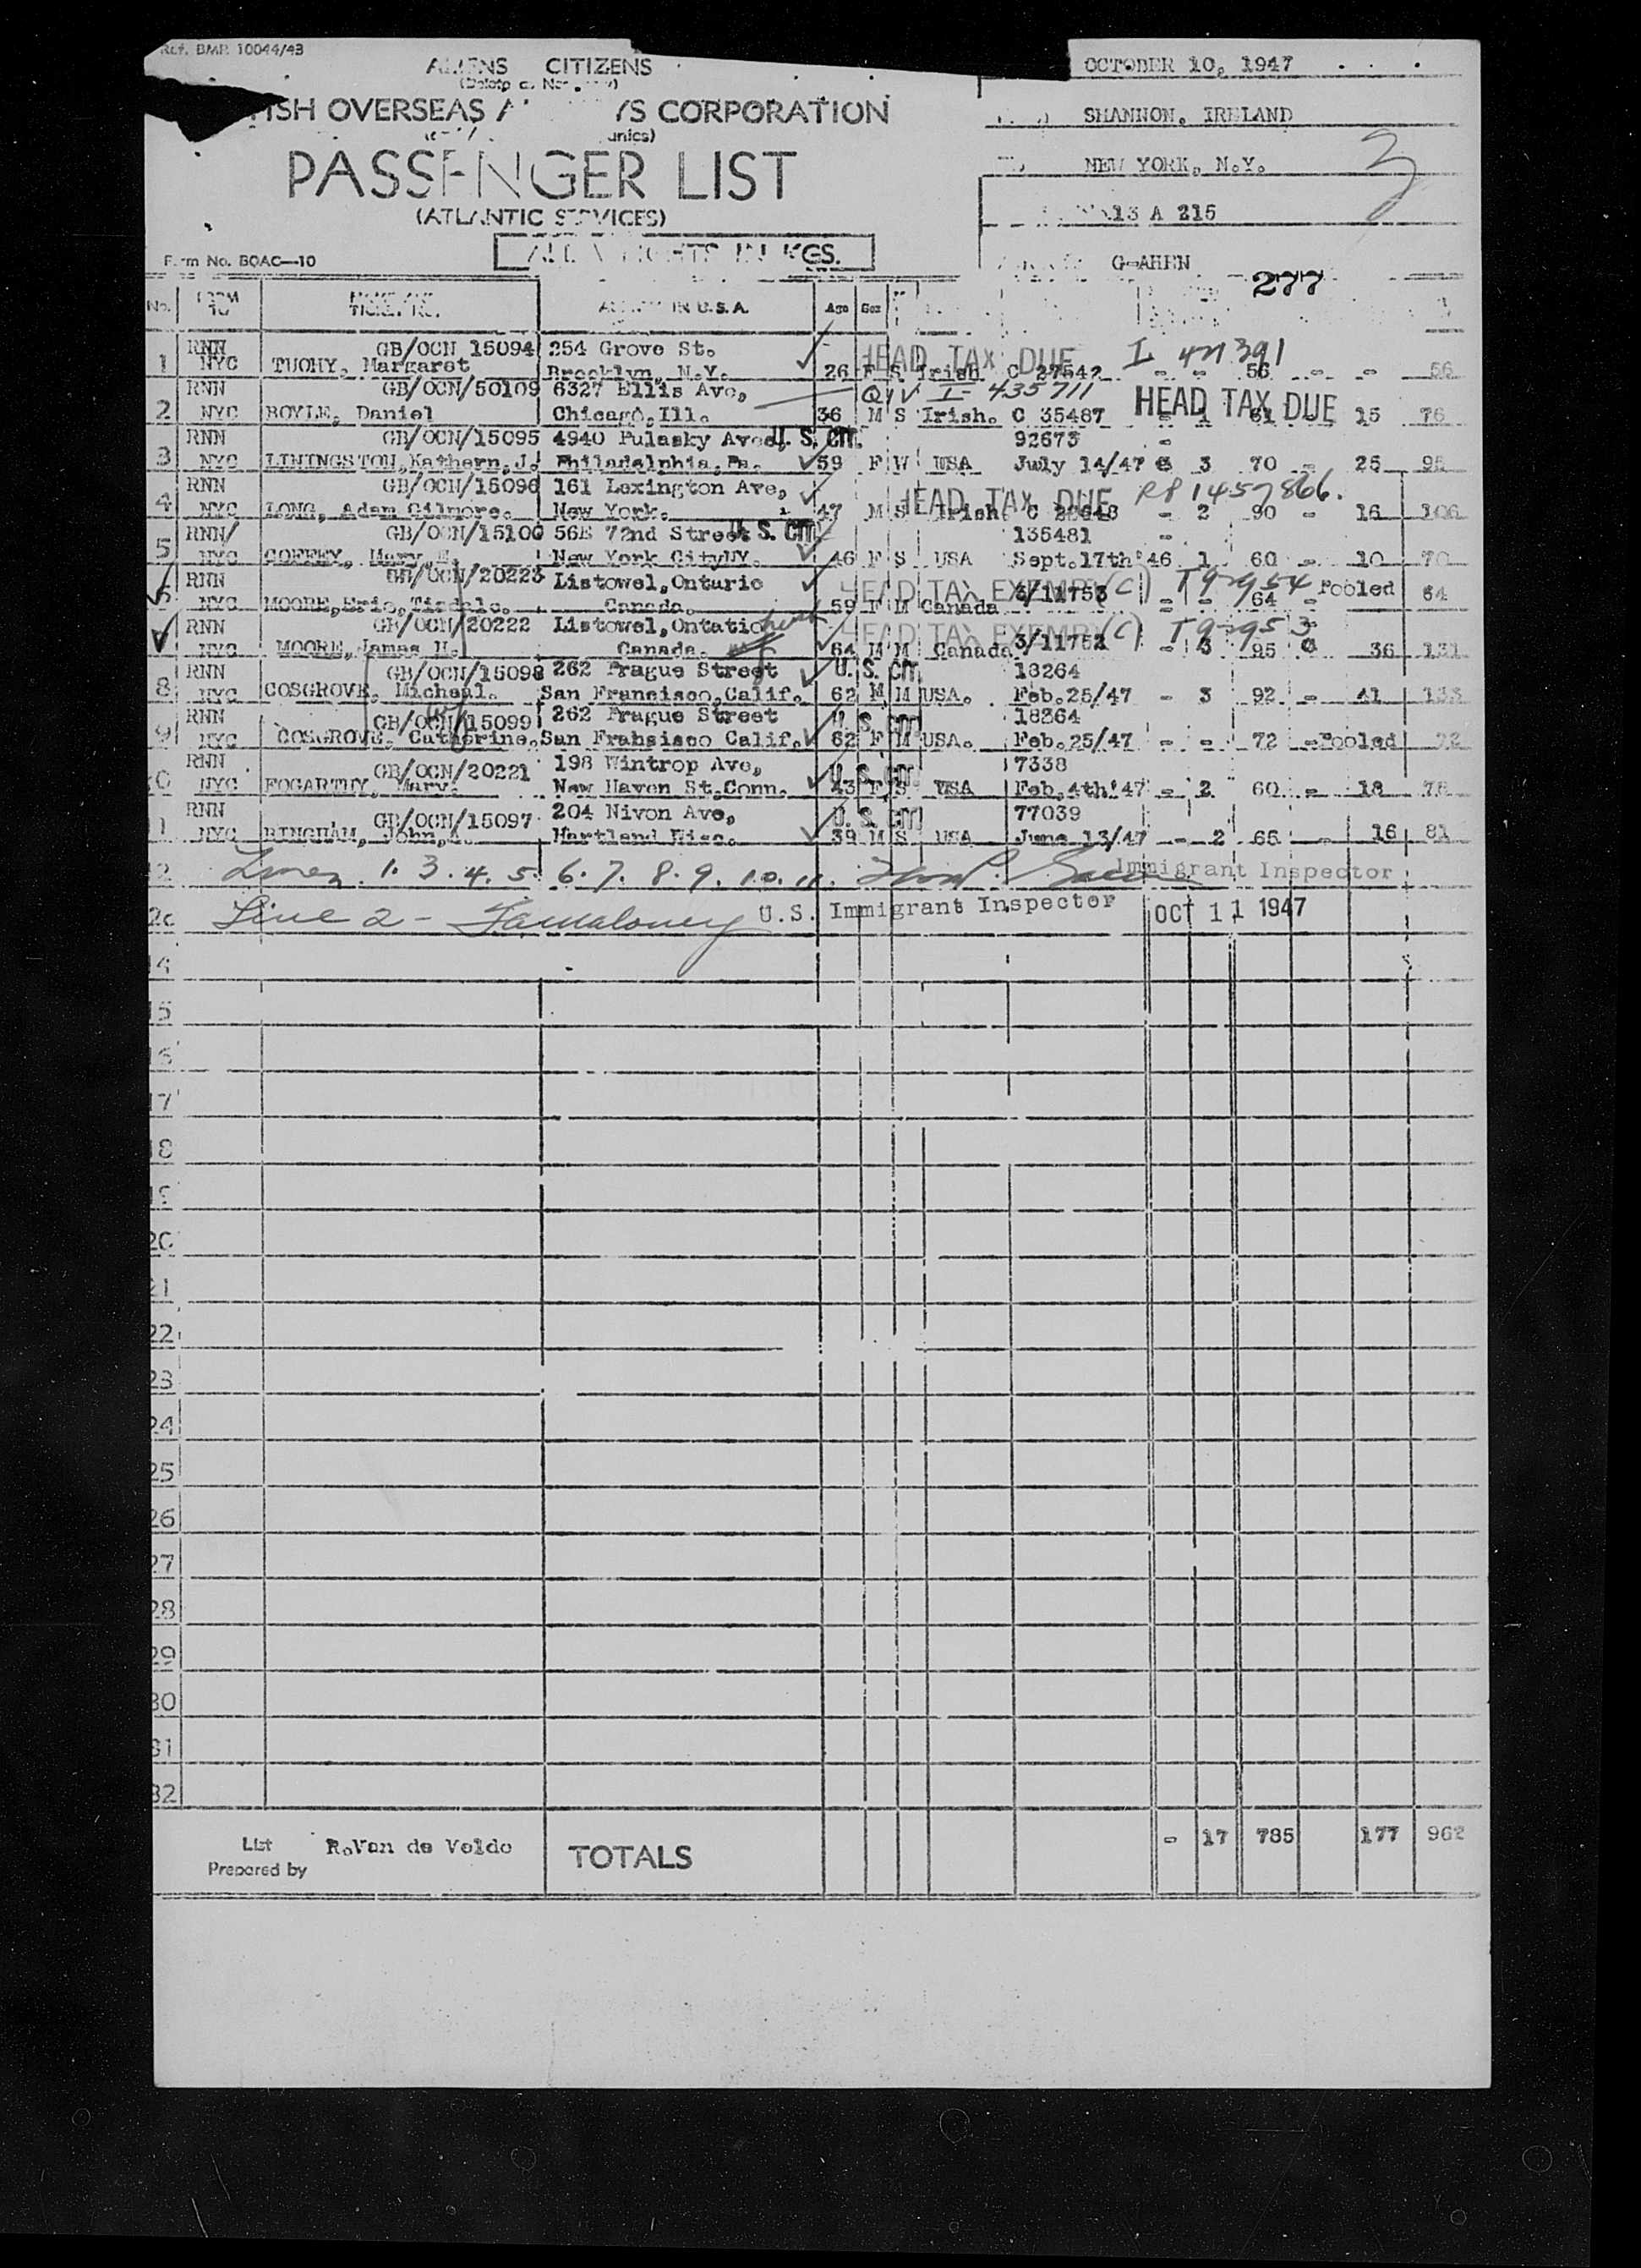 Ref. BMP. 10044/43
ALIENS CITIZENS
OCTOBER 10, 1947
OVERSEAS CORPORATION
SHANNON, IRELAND
PASSENGER LIST
NEW YORK, N.Y.
(ATLANTIC SERVICES)
13 A 215
IN KGS.
Form No. BOAC—10
G-AHEN
277
No. FROM TO IN U.S.A. Age Sex
RNN GB/OCN 15094 254 Grove St. HEAD TAX DUE
1 NYC TUOHY, Margaret Brooklyn, N.Y. 26 F S Irish C 27542 - - 56 - - 56
RNN GB/OCN/50109 6327 Ellis Ave, QIV I-435711
2 NYC BOYLE, Daniel Chicago, Ill. 36 M S Irish. C 35487 - 1 61 HEAD TAX DUE 15 76
RNN GB/OCN/15095 4940 Pulasky Ave, U.S. CIT. 92673 -
3 NYC LININGSTON, Kathern, J. Philadelphia, Pa. 59 F W USA July 14/47 3 70 - 25 95
RNN GB/OCN/15096 161 Lexington Ave, HEAD TAX DUE RP 1457866.
4 NYC LONG, Adam Gilmore. New York. 47 M S Irish C - 2 90 - 16 106
RNN/ GB/OCN/15100 56E 72nd Street U.S. CIT. 135481 -
5 NYC COFFEY, Mary, New York CityNY. 46 F S USA Sept.17th'46 1 60 - 10 70
RNN GB/OCN/20223 Listowel,Ontario HEAD TAX EXEMPT (C) T 9-954 Pooled
6 NYC MOORE, Canada. 59 F M Canada 3/11753 - - 64 - 64
RNN GB/OCN/20222 Listowel,Ontatio HEAD TAX EXEMPT (C) T9-953
NYC MOORE, James H. Canada. 64 M M Canada 3/11752 - 3 95 36 131
RNN GB/OCN/15098 262 Prague Street U.S. CIT. 18264
8 NYC COSGROVE, Micheal. San Francisco,Calif. 62 M M USA. Feb.25/47 - 3 92 - 41 133
RNN GB/OCN/15099 262 Prague Street U.S. CIT. 18264
9 NYC COSGROVE. Catherine. San Frahsisco Calif. 62 F M USA. Feb.25/47 - - 72 -Pooled 72
RNN GB/OCN/20221 198 Wintrop Ave, U.S. CIT. 7338
0 NYC FOGARTHY, Mary. New Haven St.Conn. 43 F S USA Feb.4th'47 - 2 60 - 18 78
RNN GB/OCN/15097 204 Nivon Ave, U.S. CIT 77039
1 NYC BINGHAM, John,A. Hartland Wisc. 39 M S USA June 13/47 - 2 65 - 16 81
Lines 1. 3. 4. 5. 6. 7. 8. 9. 10. 11. Immigrant Inspector
Line 2 - U.S. Immigrant Inspector OCT 11 1947
14
15
16
17
18
19
20
21
22
23
24
25
26
27
28
29
30
31
32
List Prepared by R.Van de Velde TOTALS - 17 785 177 962